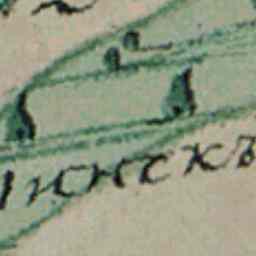 Пинскъ